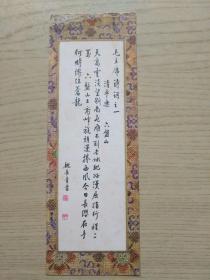 毛主席诗词之一
清平乐
六盘山
天高云淡望断南飞雁不到长城非好汉屈指行程二
万 六盘山上高峰旄头漫卷西风今日长缨在手
何时缚住苍龙